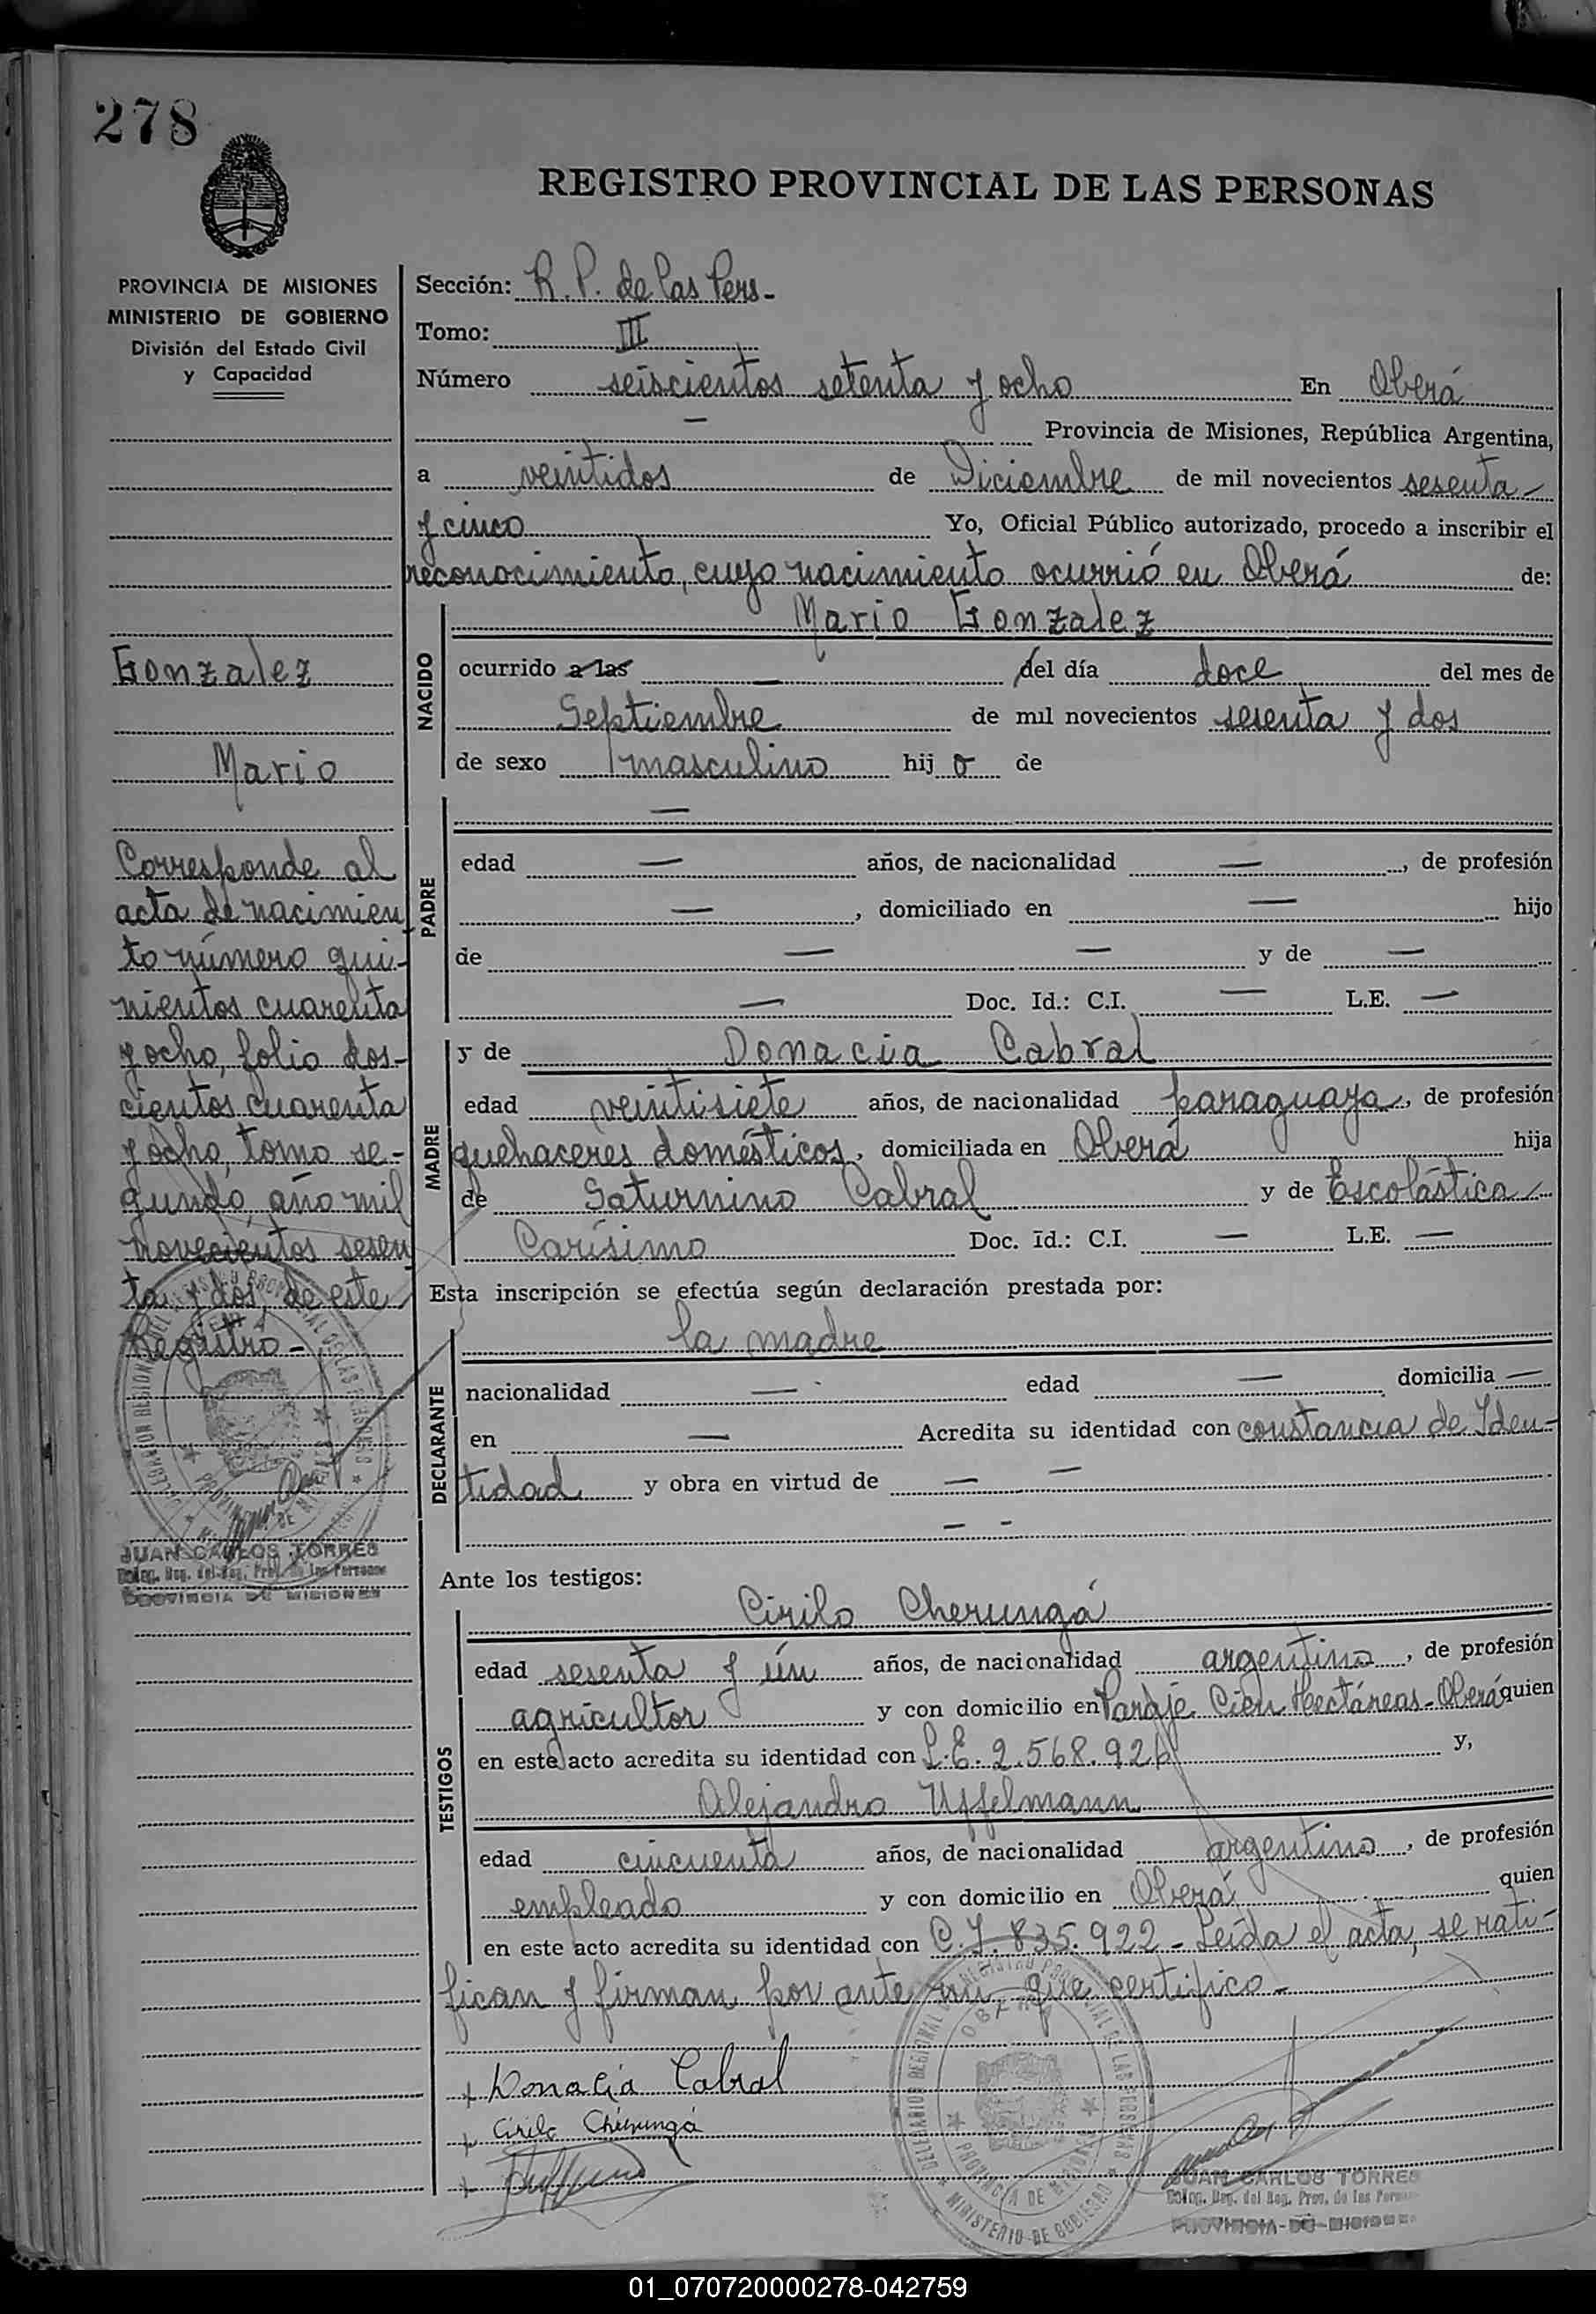 278
REGISTRO PROVINCIAL DE LAS PERSONAS
PROVINCIA DE MISIONES
MINISTERIO DE GOBIERNO
División del Estado Civil
y Capacidad
Gonzalez
Mario
Corresponde al
acta de nacimien
to número qui-
nientos cuarenta
y ocho, folio dos-
cientos cuarenta
y ocho, tomo se-
gundo, año mil
novecientos sesen
ta y dos, de este
Registro-
JUAN CARLOS TORRES
Deleg. Reg. del Reg. Prov. de las Personas
PROVINCIA DE MISIONES
Sección: R. P. de las Pers-
Tomo: III
Número seiscientos setenta y ocho En Oberá
— Provincia de Misiones, República Argentina,
a veintidos de Diciembre de mil novecientos sesenta-
y cinco Yo, Oficial Público autorizado, procedo a inscribir el
reconocimiento, cuyo nacimiento ocurrió en Oberá de:
Mario Gonzalez
NACIDO
ocurrido a las — del día doce del mes de
Septiembre de mil novecientos sesenta y dos
de sexo masculino hij o de
PADRE
—
edad — años, de nacionalidad —, de profesión
—, domiciliado en — hijo
de — — y de —
— Doc. Id.: C.I. — L.E. —
MADRE
y de Donacia Cabral
edad veintisiete años, de nacionalidad paraguaya, de profesión
quehaceres domésticos, domiciliada en Oberá hija
de Saturnino Cabral y de Escolástica
Carísimo Doc. Id.: C.I. — L.E. —
Esta inscripción se efectúa según declaración prestada por:
DECLARANTE
la madre
nacionalidad — edad — domicilia —
en — Acredita su identidad con constancia de Iden-
tidad y obra en virtud de — —
— -
Ante los testigos:
TESTIGOS
Cirilo Cherungá
edad sesenta y ún años, de nacionalidad argentino, de profesión
agricultor y con domicilio en Paraje Cien Hectáreas-Oberá quien
en este acto acredita su identidad con L.E. 2.568.926 y,
Alejandro Uffelmann
edad cincuenta años, de nacionalidad argentino, de profesión
empleado y con domicilio en Oberá quien
en este acto acredita su identidad con C.I. 835.922- Leída el acta, se rati-
fican y firman por ante mí que certifico-
+ Donacia Cabral
+ Cirilo Cherungá
+
DELEGACION REGIONAL DEL REGISTRO PROVINCIAL DE LAS PERSONAS
OBERA
PROVINCIA DE MISIONES
MINISTERIO DE GOBIERNO
JUAN CARLOS TORRES
Deleg. Reg. del Reg. Prov. de las Personas
PROVINCIA DE MISIONES
01_070720000278-042759